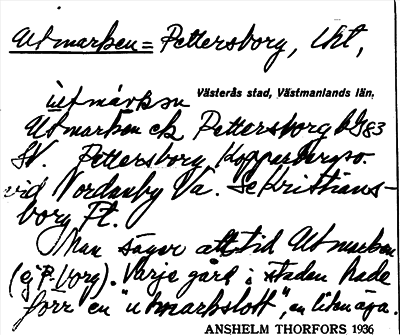 Utmarken = Pettersborg, Uht,
Västerås stad, Västmanlands län.
utmárkən
Utmarken el. Pettersborg bg 83
SV. Pettersborg, Kopparbergsv.
vid Nordanby Vä. Se Kristians-
borg Ft.
Man säger alltid Utmarken
(ej P.borg). Varje gård i staden hade
förr en "utmarkslott", en liten äga.
ANSHELM THORFORS 1936